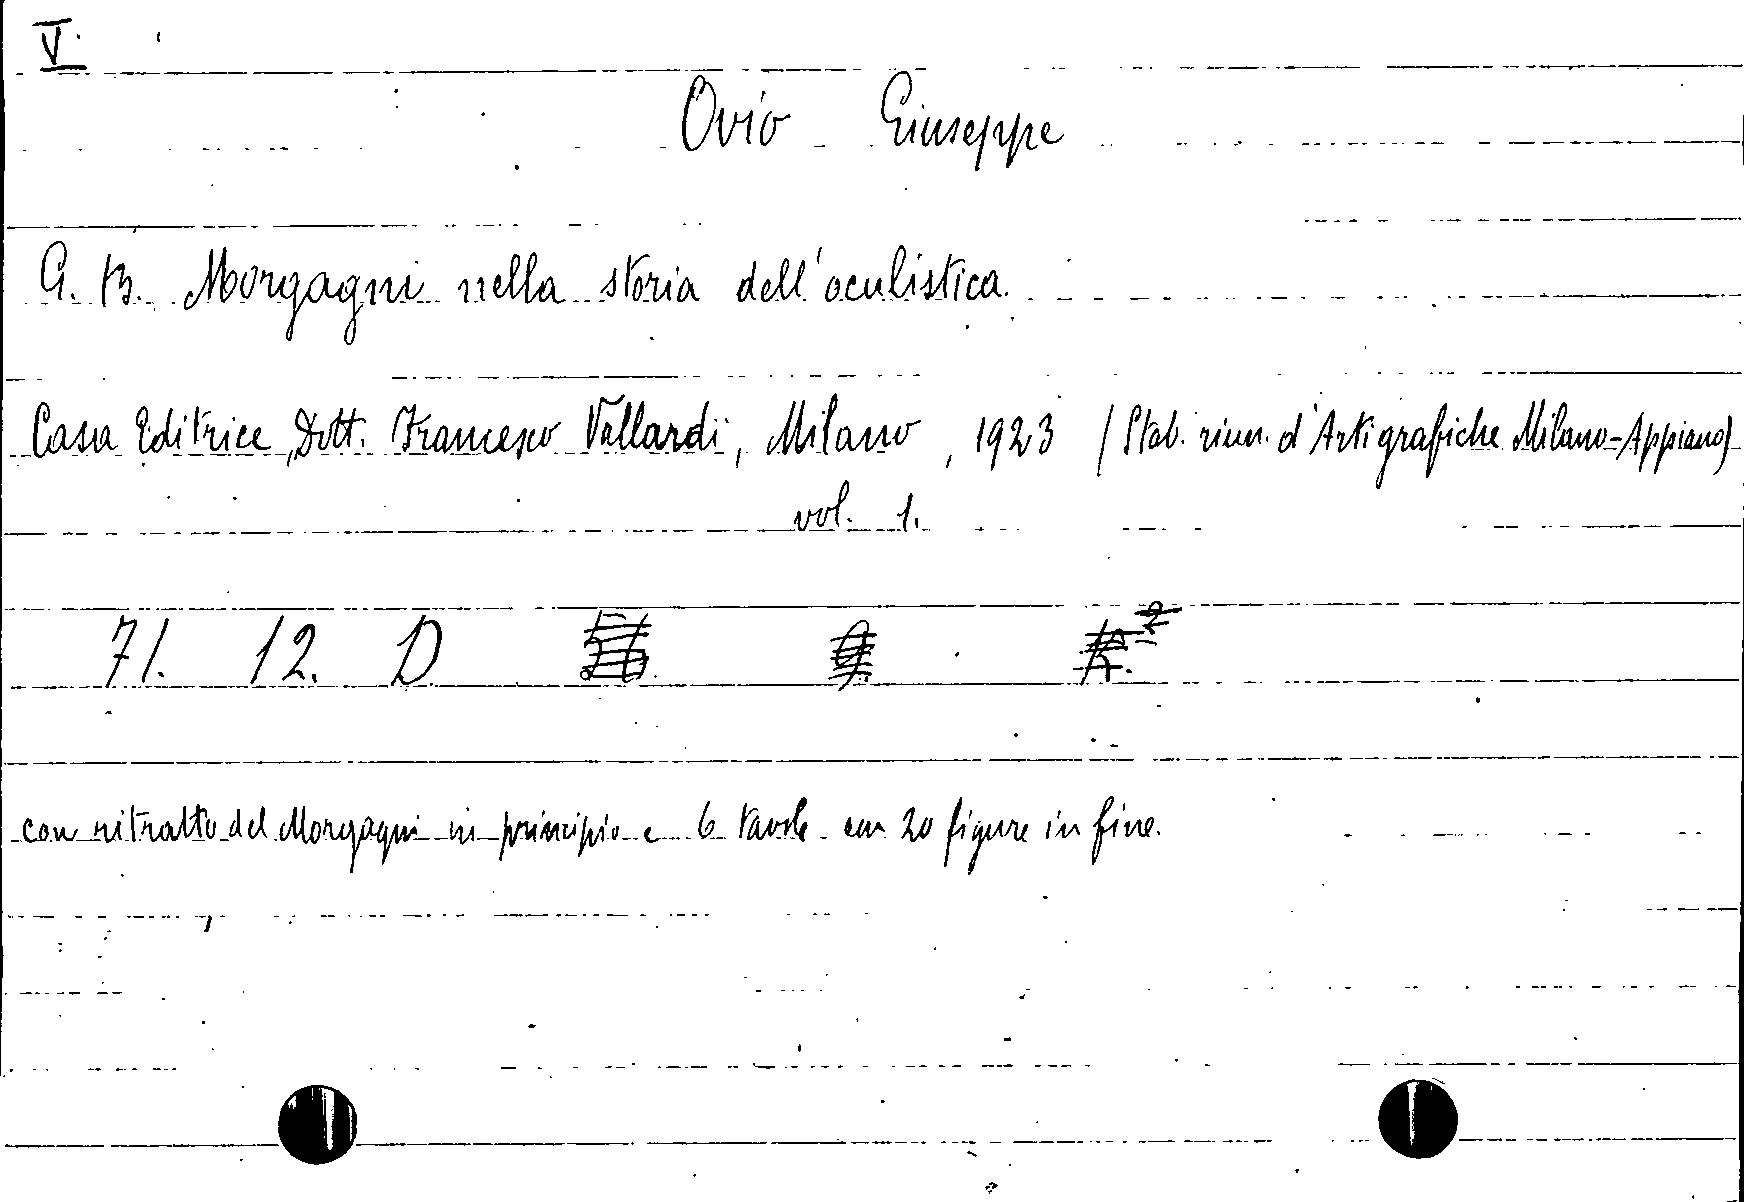 V.
Ovio Giuseppe
G. B. Morgagni nella storia dell'oculistica.
Casa Editrice, Dott. Francesco Vallardi, Milano, 1923 (Stab. riun. d'Arti grafiche Milano-Appiano)
vol. 1.
71. 12. D
con ritratto del Morgagni in principio e 6 tavole con 20 figure in fine.